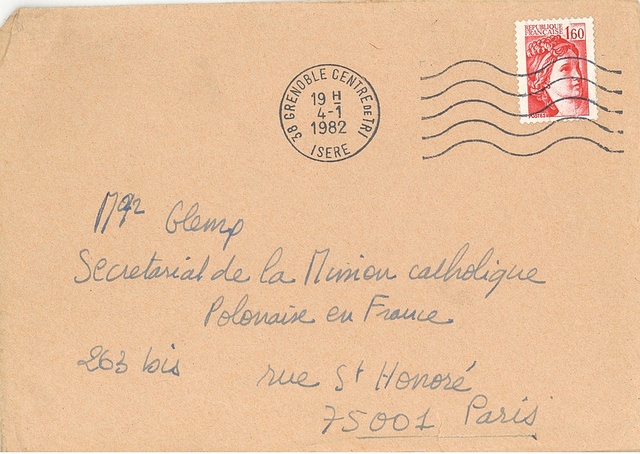 REPUBLIQUE
FRANCAISE
1,60
POSTES
38 GRENOBLE CENTRE DE TRI
19 H
4-1
1982
ISERE
Mgr Glemp
Secretariat de la Mission catholique
Polonaise en France
263 bis rue St Honoré
75001 Paris